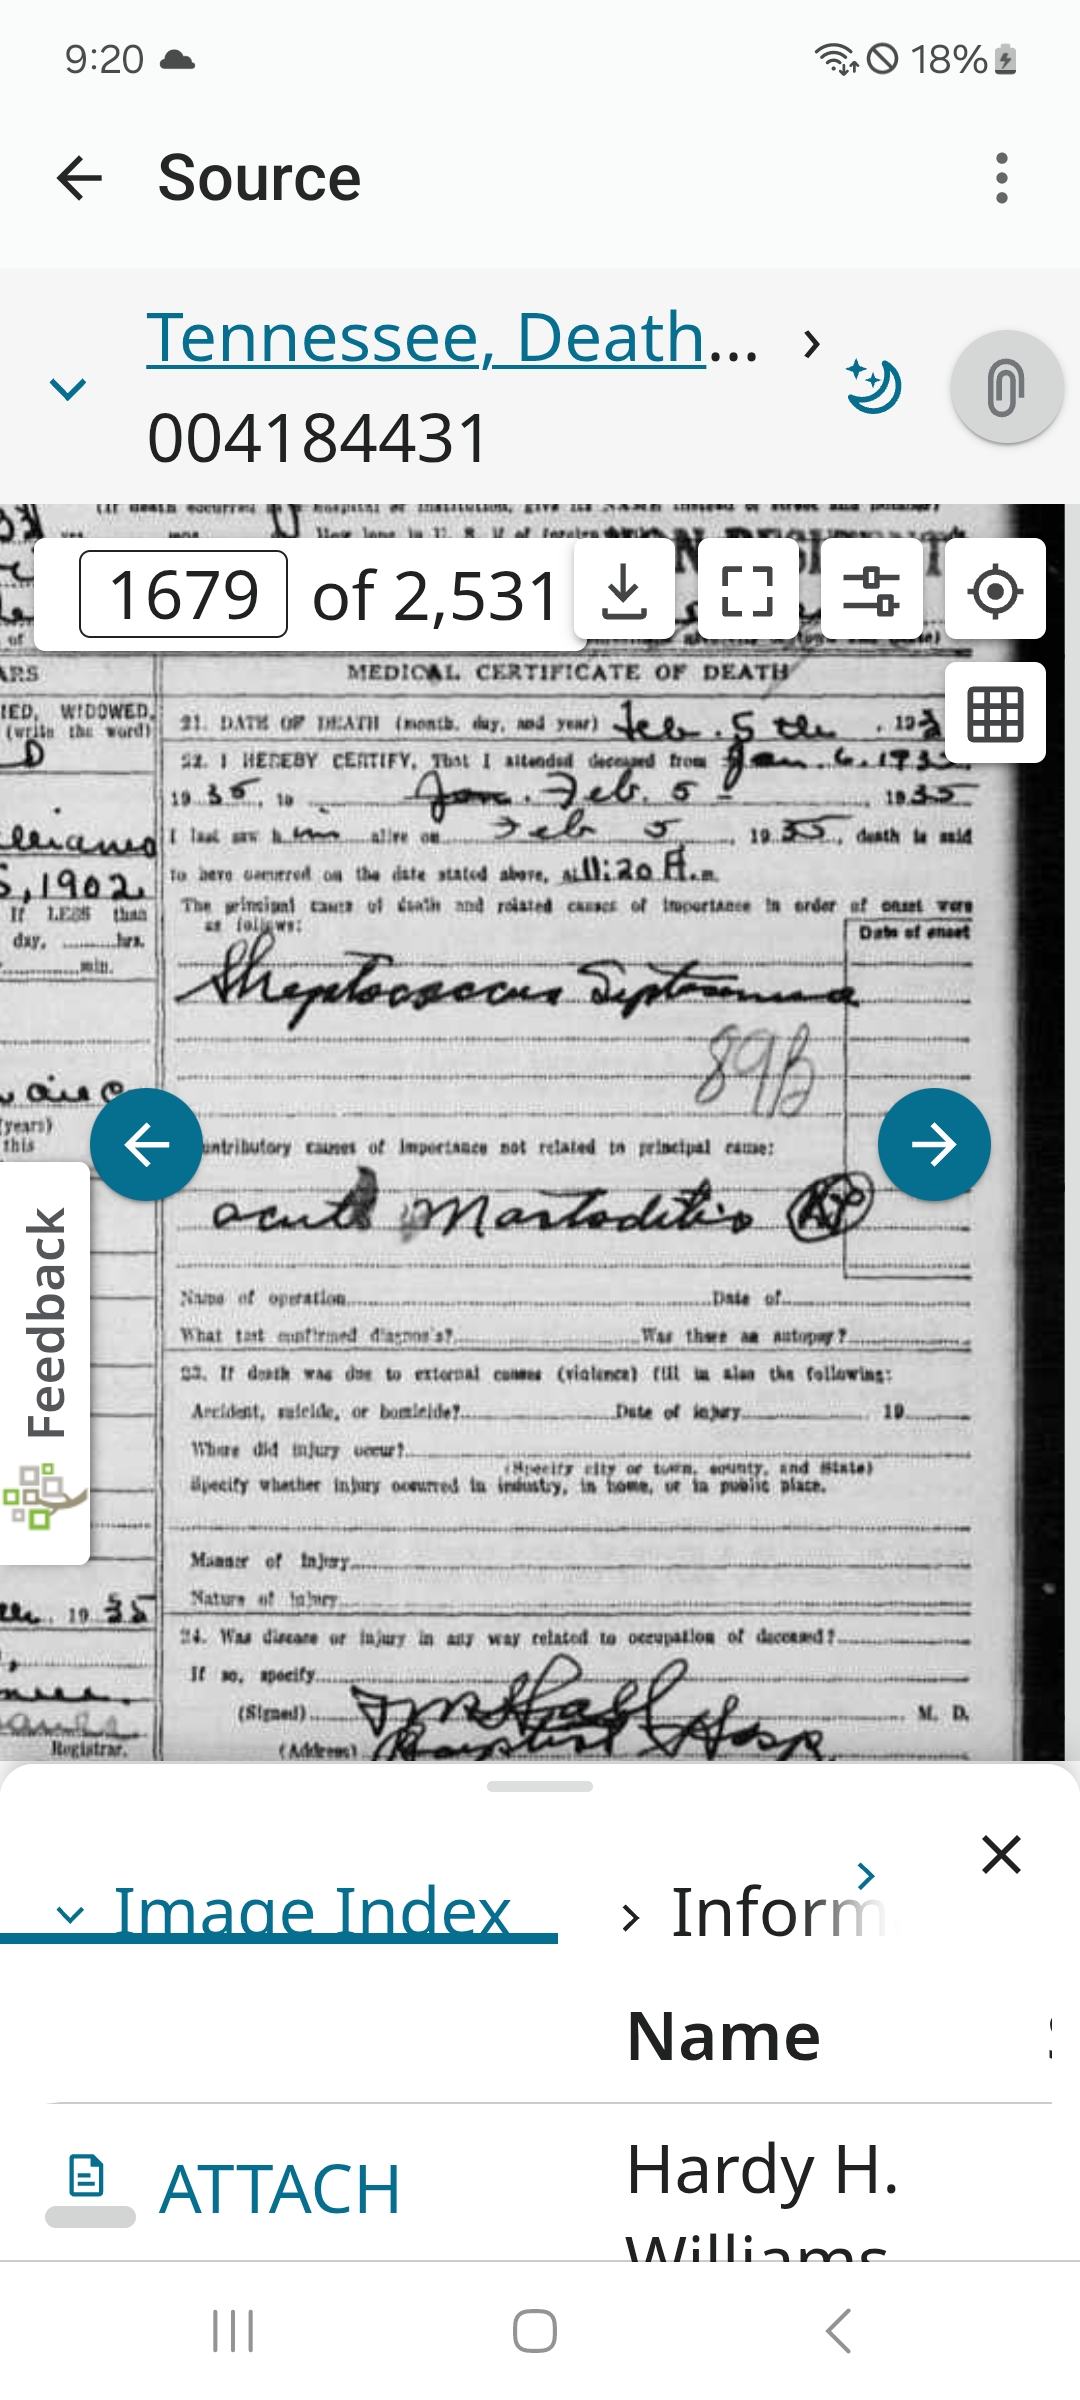 9:20 18%
Source
Tennessee, Death... ›
004184431
(If death occurred hospital or institution, give its NAME instead of street and number)
1679 of 2,531
ARS MEDICAL CERTIFICATE OF DEATH
IED, WIDOWED,
(write the word)
21. DATE OF DEATH (month, day, and year) Feb. 5 th , 193
D 22. I HEREBY CERTIFY, That I attended deceased from Jan. 6. 193
19 35, to Feb. 5 , 1935
lliams I last saw him alive on Feb 5, 1935, death is said
5, 1902 to have occurred on the date stated above, at 11:20 A.m.
If LESS than The principal cause of death and related causes of importance in order of onset were
as follows:
day, hrs. Date of onset
min.
Streptococcus Septicemia
89B
(years)
this
ontributory causes of importance not related to principal cause:
acute Mastoditis
Name of operation Date of
What test confirmed diagnosis? Was there an autopsy?
23. If death was due to external causes (violence) fill in also the following:
Accident, suicide, or homicide? Date of injury 19
Where did injury occur?
(Specify city or town, county, and State)
Specify whether injury occurred in industry, in home, or in public place.
Manner of Injury
Nature of injury
19 35
24. Was disease or injury in any way related to occupation of deceased?
If so, specify
(Signed) M. D.
Registrar. (Address) Baptist Hosp
Feedback
Image Index › Inform
Name
ATTACH Hardy H.
Williams